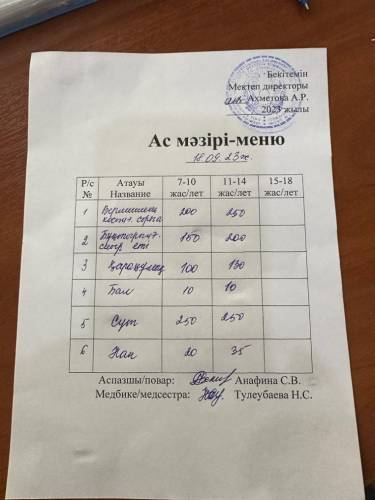 Бекітемін
Мектеп директоры
Ахметова А.Р.
2023 жылы
Ас мәзірі-меню
18.09.23ж.
Р/с № Атауы Название 7-10 жас/лет 11-14 жас/лет 15-18 жас/лет
1 Вермишель сорпа 200 250
2 сиыр еті 150 200
3 100 130
4 Бал 10 10
5 Сүт 250 250
6 Нан 20 35
Аспазшы/повар: Анафина С.В.
Медбике/медсестра: Тулеубаева Н.С.